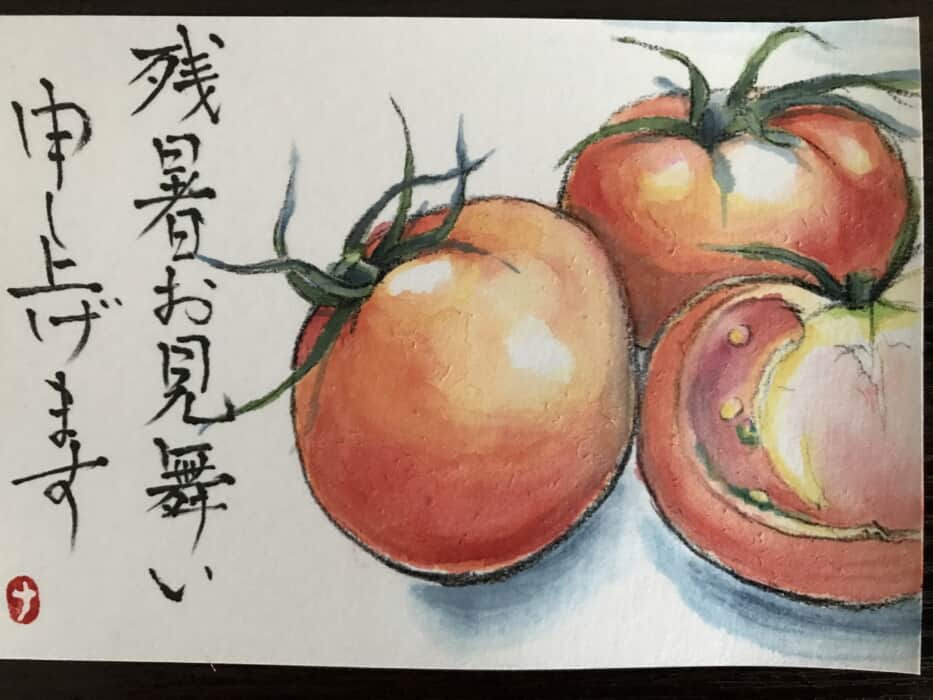 残暑お見舞い
申し上げます
ナ